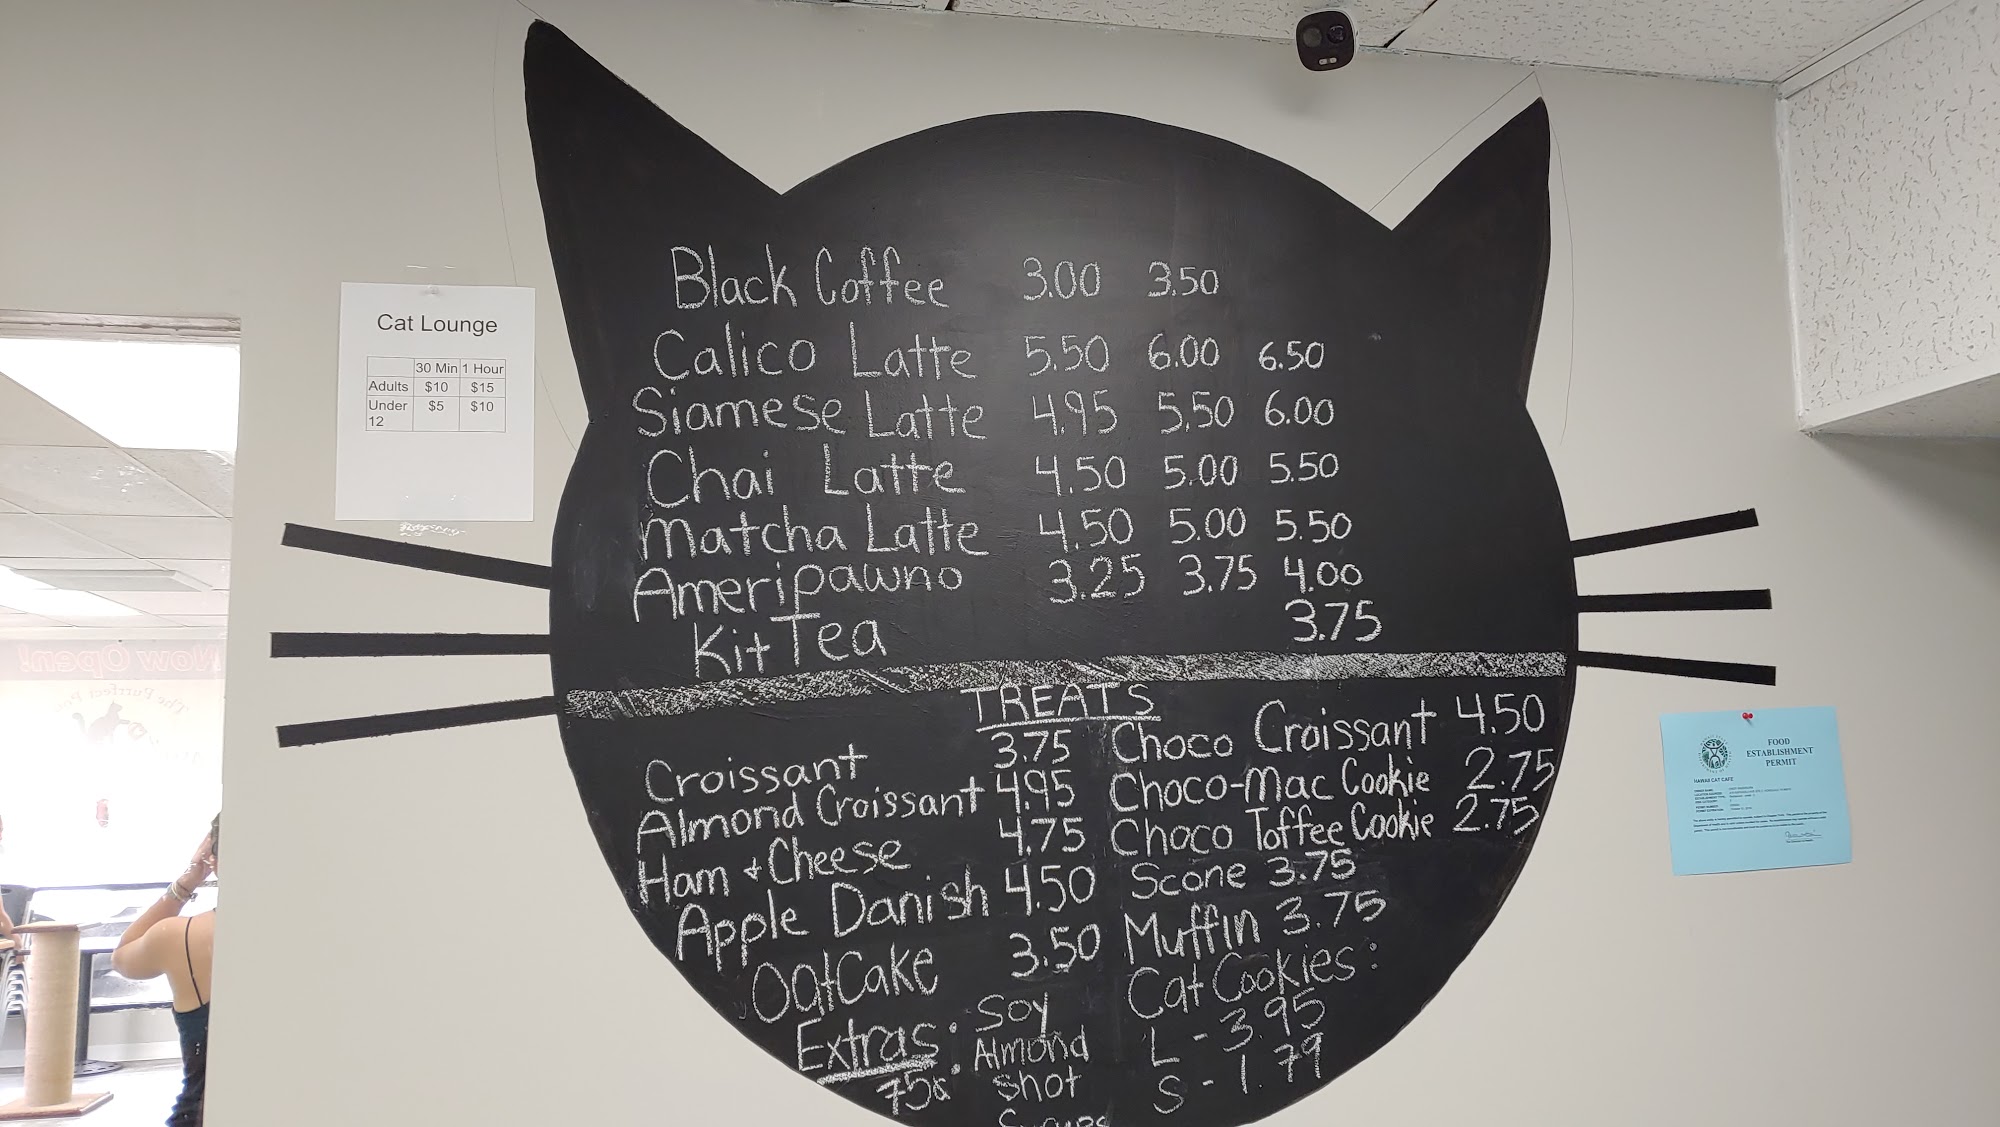 Cat Lounge
30 Min 1 Hour
Adults $10 $15
Under 12 $5 $10
Black Coffee 3.00 3.50
Calico Latte 5.50 6.00 6.50
Siamese Latte 4.95 5.50 6.00
Chai Latte 4.50 5.00 5.50
Matcha Latte 4.50 5.00 5.50
Ameripawno 3.25 3.75 4.00
Kit Tea 3.75
TREATS
Croissant 3.75
Almond Croissant 4.95
Ham + Cheese 4.75
Apple Danish 4.50
OatCake 3.50
Extras: Soy
75¢ Almond
Shot
Choco Croissant 4.50
Choco-Mac Cookie 2.75
Choco Toffee Cookie 2.75
Scone 3.75
Muffin 3.75
Cat Cookies:
L - 3.95
S - 1.79
Now Open!
The Purrfect
FOOD
ESTABLISHMENT
PERMIT
HAWAII CAT CAFE